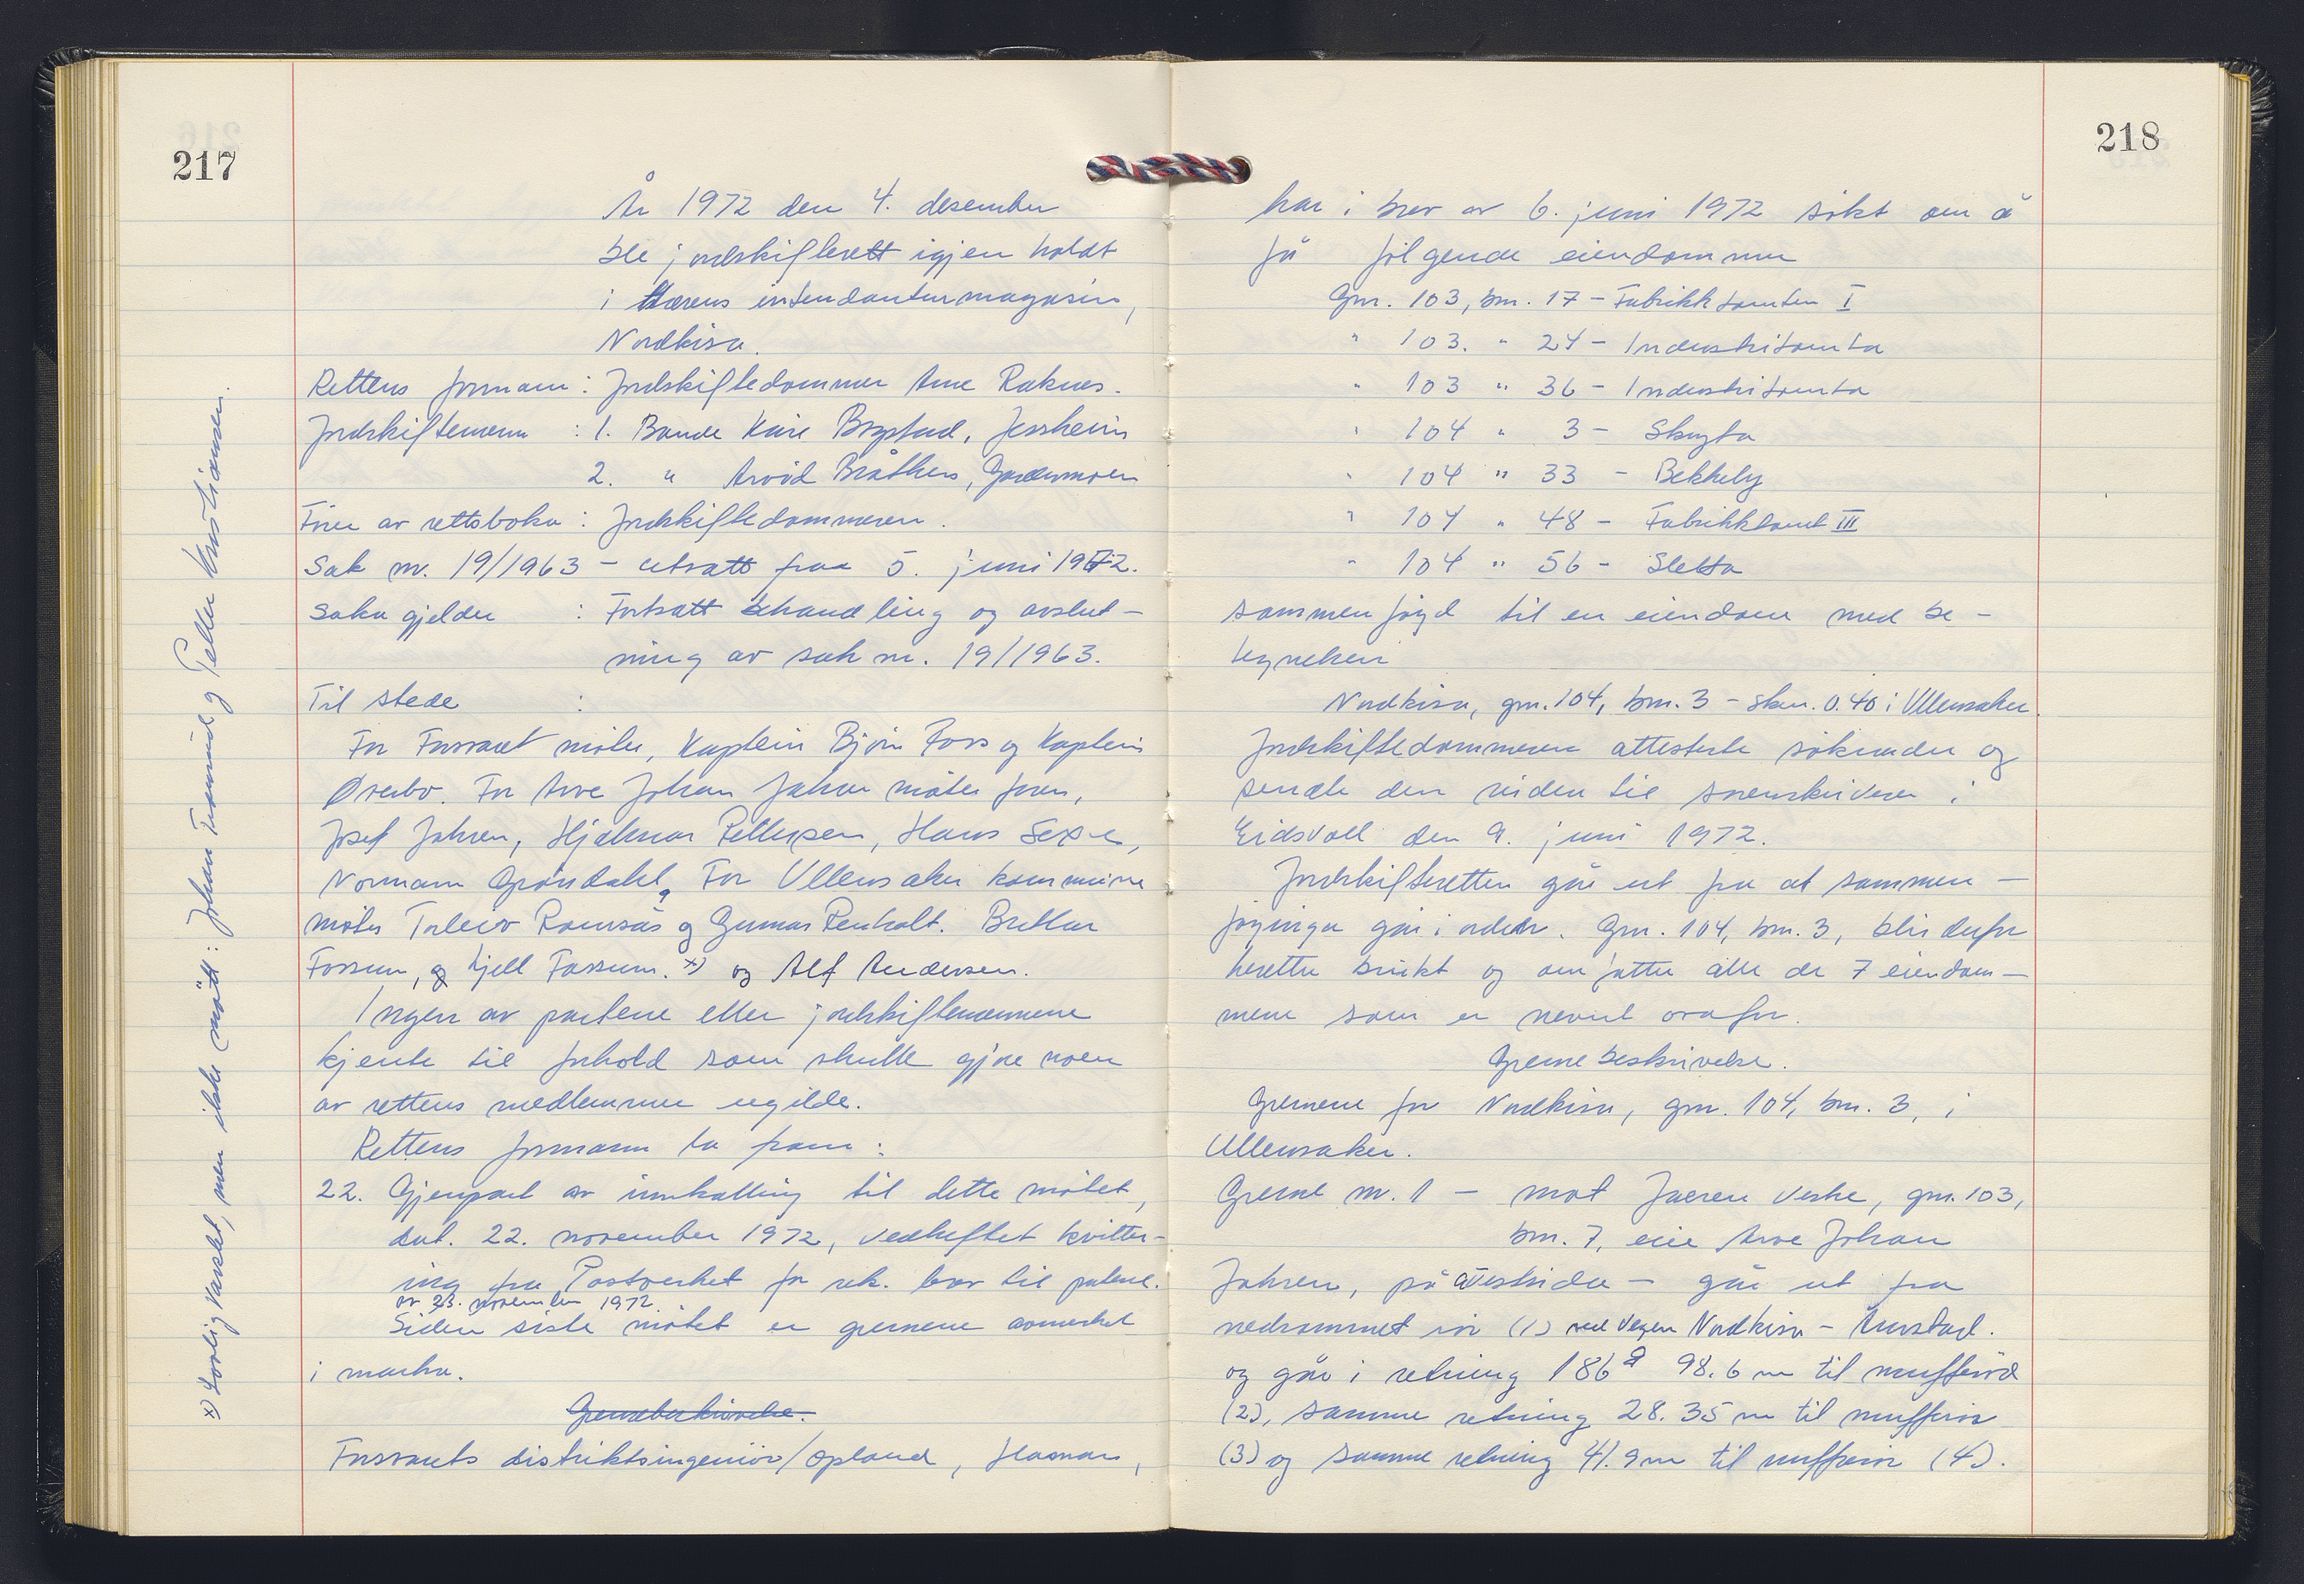 217
År 1972 den 4. desember
ble jordskifterett igjen holdt
i Hærens intendanturmagasin,
Nordkisa.
Rettens formann: Jordskiftedommer Arne Raknes.
Jordskiftemenn : 1. Bonde Kåre Bogstad, Jessheim
2. " Arvid Bråthen, Gardermoen
Fører av rettsboka: Jordskiftedommeren.
Sak nr. 19/1963 - utsatt fra 5. juni 1972.
Saka gjelder : Fortsatt behandling og avslut-
ning av sak nr. 19/1963.
Til stede :
For Forsvaret møter, Kaptein Bjørn Foss og Kaptein
Øverbø. For Arve Johan Jahren møter faren,
Josef Jahren, Hjalmar Pettersen, Hans Sexe,
Normann Grøndahl, For Ullensaker kommune
møter Torleiv Ramsås og Gunnar Renholt. Brettar
Fossum, og Kjell Fossum. x) og Alf Andersen.
Ingen av partene eller jordskiftemennene
kjente til forhold som skulle gjøre noen
av rettens medlemmer ugilde.
Rettens formann la fram:
22. Gjenpart av innkalling til dette møtet,
dat. 22. november 1972, vedheftet kvitter-
ing fra Postverket for rek. brev til partene.
av 23. november 1972.
Siden siste møtet er grensene avmerket
i marka.
Grensebeskrivelse.
Forsvarets distriktsingeniør/Opland, Hamar,
x) Lovlig varslet, men ikke møtt: Johan Tromsrud og Petter Kristiansen.
218
har i brev av 6. juni 1972 søkt om å
få følgende eiendommer
Gnr. 103, bnr. 17 - Fabrikktomten I
" 103. " 24 - Industritomta
" 103 " 36 - Industritomta
" 104 " 3 - Skogta
" 104 " 33 - Bekkely
" 104 " 48 - Fabrikktomt III
" 104 " 56 - Sletta
sammenføyd til en eiendom med be-
tegnelsen
Nordkisa, gnr. 104, bnr. 3 - skm. 0.40 i Ullensaker.
Jordskiftedommeren attesterte søknaden og
sendte den videre til sorenskriveren i
Eidsvoll den 9. juni 1972.
Jordskifteretten går ut fra at sammen-
føyinga går i orden. Gnr. 104, bnr. 3, blir derfor
heretter brukt og omfatter alle de 7 eiendom-
mene som er nevnt ovafor.
Grensebeskrivelse.
Grensene for Nordkisa, gnr. 104, bnr. 3, i
Ullensaker.
Grense nr. 1 - mot Jaeren vestre, gnr. 103,
bnr. 7, eier Arve Johan
Jahren, på vestsida - går ut fra
nedrammet rør (1) ved vegen Nordkisa - Aurstad.
og går i retning 186g 98.6 m til mufferør
(2), samme retning 28.35 m til mufferør
(3) og samme retning 41.9 m til mufferør (4).